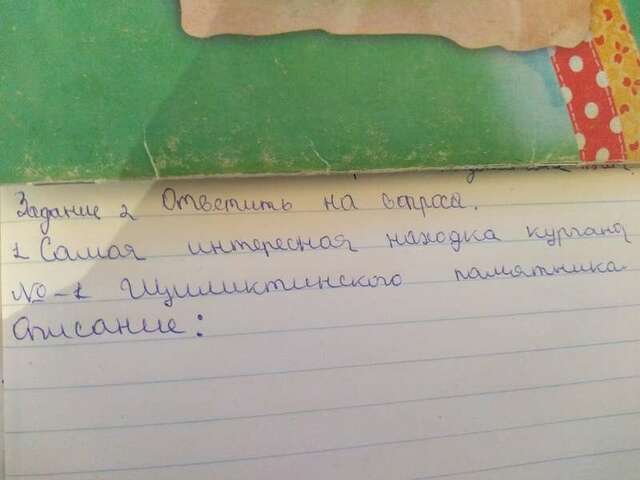 Задание 2 Ответить на вопроса.
1 Самая интересная находка кургана
№-1 Шиликтинского памятника.
Описание: